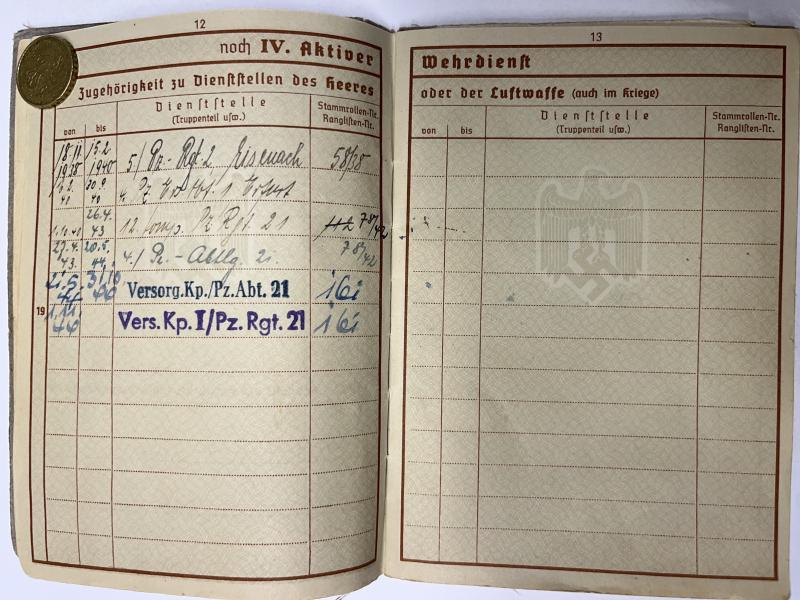 12
noch IV. Aktiver
Zugehörigkeit zu Dienststellen des Heeres
von bis Dienststelle (Truppenteil usw.) Stammrollen-Nr. Ranglisten-Nr.
18.11. 1938 15.2. 1940 5./ Pz.-Rgt. 2 Eisenach 58/38
40 30.9. 40 Pz. 1 Erfurt
1.10.40 26.4. 43 12. Komp. Pz Rgt. 21 112 787/42
27.4. 43. 20.5. 44. 4./ Pz.-Abtlg. 21. 787/42
21.5. 44 Versorg.Kp./Pz.Abt. 21 161
19 1.11. 44 Vers.Kp.I/Pz.Rgt.21 161
13
Wehrdienst
oder der Luftwaffe (auch im Kriege)
von bis Dienststelle (Truppenteil usw.) Stammrollen-Nr. Ranglisten-Nr.